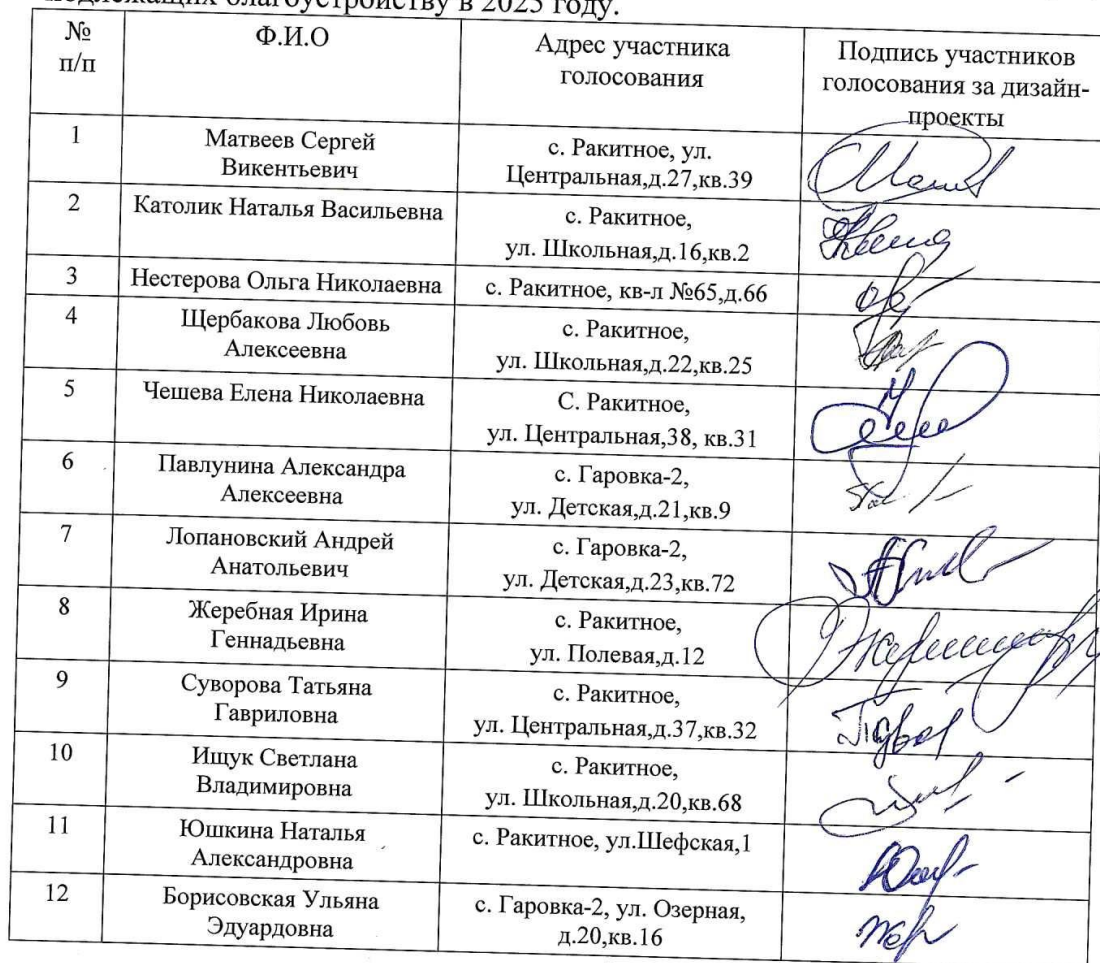 подлежащих благоустройству в 2025 году.
№ п/п
Ф.И.О
Адрес участника
голосования
Подпись участников
голосования за дизайн-
проекты
1
Матвеев Сергей
Викентьевич
с. Ракитное, ул.
Центральная,д.27,кв.39
2
Католик Наталья Васильевна
с. Ракитное,
ул. Школьная,д.16,кв.2
3
Нестерова Ольга Николаевна
с. Ракитное, кв-л №65,д.66
4
Щербакова Любовь
Алексеевна
с. Ракитное,
ул. Школьная,д.22,кв.25
5
Чешева Елена Николаевна
С. Ракитное,
ул. Центральная,38, кв.31
6
Павлунина Александра
Алексеевна
с. Гаровка-2,
ул. Детская,д.21,кв.9
7
Лопановский Андрей
Анатольевич
с. Гаровка-2,
ул. Детская,д.23,кв.72
8
Жеребная Ирина
Геннадьевна
с. Ракитное,
ул. Полевая,д.12
9
Суворова Татьяна
Гавриловна
с. Ракитное,
ул. Центральная,д.37,кв.32
10
Ищук Светлана
Владимировна
с. Ракитное,
ул. Школьная,д.20,кв.68
11
Юшкина Наталья
Александровна
с. Ракитное, ул.Шефская,1
12
Борисовская Ульяна
Эдуардовна
с. Гаровка-2, ул. Озерная,
д.20,кв.16